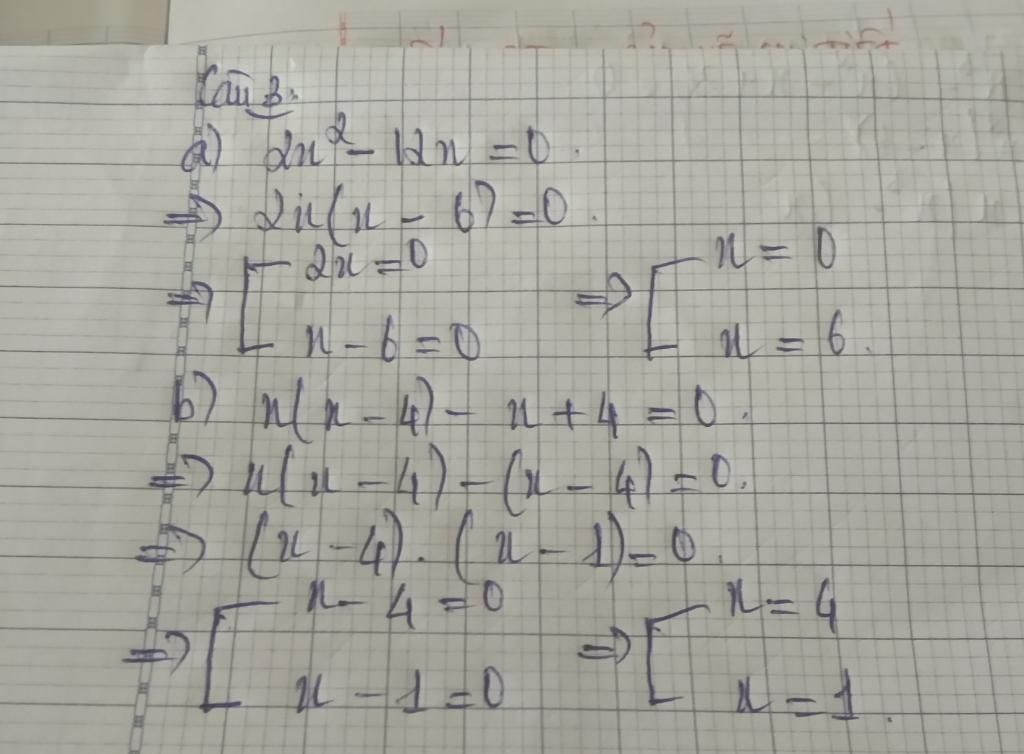 Câu 3.
a) 2x² - 12x = 0.
=> 2x(x - 6) = 0.
=> [ 2x = 0 => [ x = 0
x - 6 = 0 x = 6.
b) x(x - 4) - x + 4 = 0.
=> x(x - 4) - (x - 4) = 0.
=> (x - 4) . (x - 1) = 0.
=> [ x - 4 = 0 => [ x = 4
x - 1 = 0 x = 1.